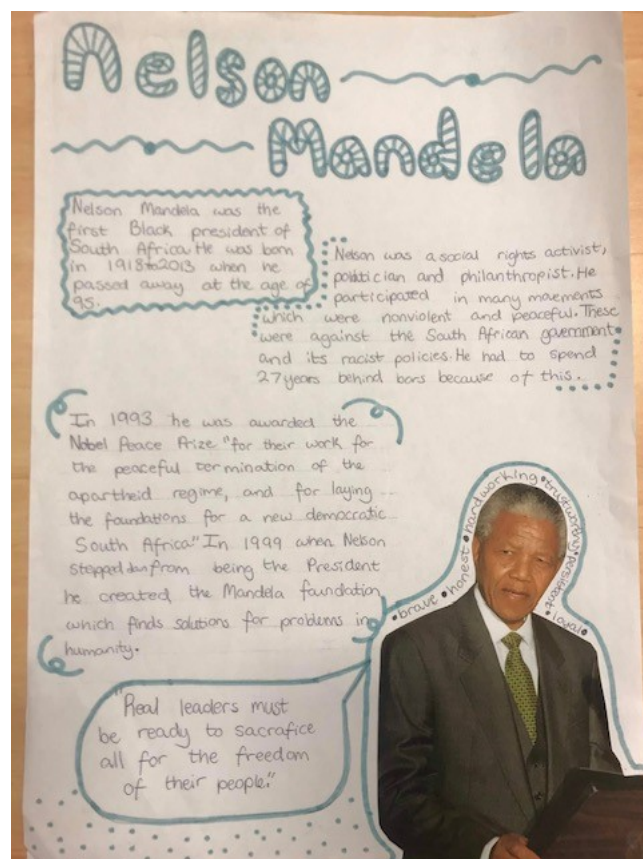 Nelson
Mandela
Nelson Mandela was the
first Black president of
South Africa. He was born
in 1918 to 2013 when he
passed away at the age of
95.
Nelson was a social rights activist,
politician and philanthropist. He
participated in many movements
which were nonviolent and peaceful. These
were against the South African government
and its racist policies. He had to spend
27 years behind bars because of this.
In 1993 he was awarded the
Nobel Peace Prize "for their work for
the peaceful termination of the
apartheid regime, and for laying
the foundations for a new democratic
South Africa" In 1999 when Nelson
stepped down from being the President
he created the Mandela foundation
which finds solutions for problems in
humanity.
•brave •honest •hardworking •trustworthy •persistent •loyal•
"Real leaders must
be ready to sacrafice
all for the freedom
of their people."